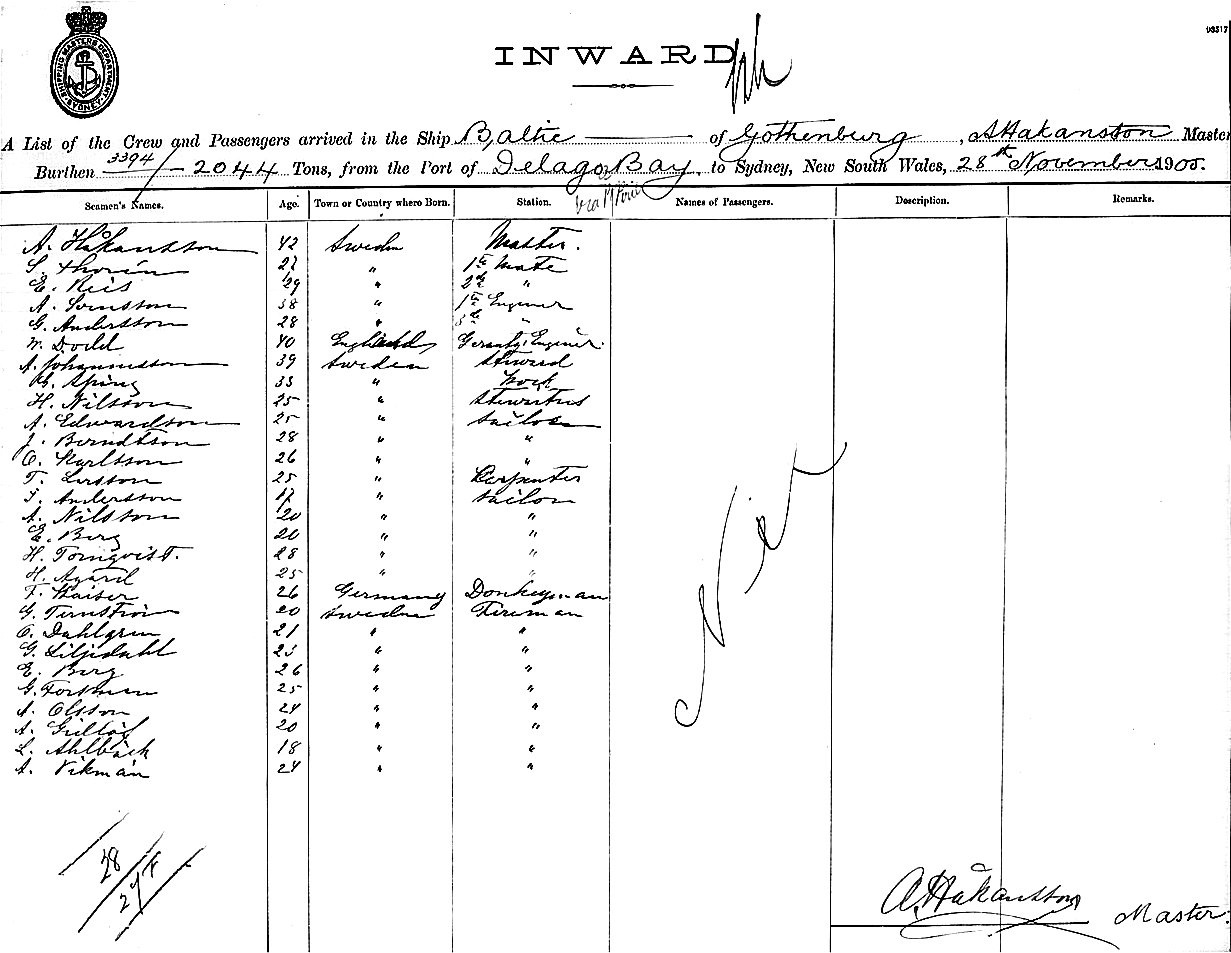 SHIPPING MASTERS DEPARTMENT SYDNEY
93517
INWARD
A List of the Crew and Passengers arrived in the Ship Baltic of Gothenburg, A Hakansson Master
Burthen 3394/2044 Tons, from the Port of Delagoa Bay to Sydney, New South Wales, 28th November 1905.
via Pt Pirie
Seamen's Names. Age. Town or Country where Born. Station. Names of Passengers. Description. Remarks.
A. Håkansson 42 Sweden Master.
S. Thorin 27 " 1st Mate
E. Reis 29 " 2d "
A. Svensson 38 " 1st Engineer
G. Andersson 28 " "
W. Dodd 40 England Engineer
A. Johannesson 39 Sweden Steward
Spring 33 " Kock
H. Nilsson 25 "
A. Edwardson 25 " Sailor
J. Berndtson 28 " "
O. Karlsson 26 " "
T. Larsson 25 " Carpenter
T. Andersson 17 " Sailor
A. Nilsson 20 " "
E. Berg 20 " "
H. Tornqvist. 28 " "
H. Agård 25 " "
F. Kaiser 26 Germany Donkeyman
G. Ternström 20 Sweden Fireman
O. Dahlgren 21 " "
G. Liljedahl 23 " "
E. Berg 26 " "
G. Forsman 25 " "
A. Olsson 24 " "
A. 20 " "
L. Ahlbäck 18 " "
A. Vikman 24 " "
Nil
28
27 F
A. Håkansson Master.